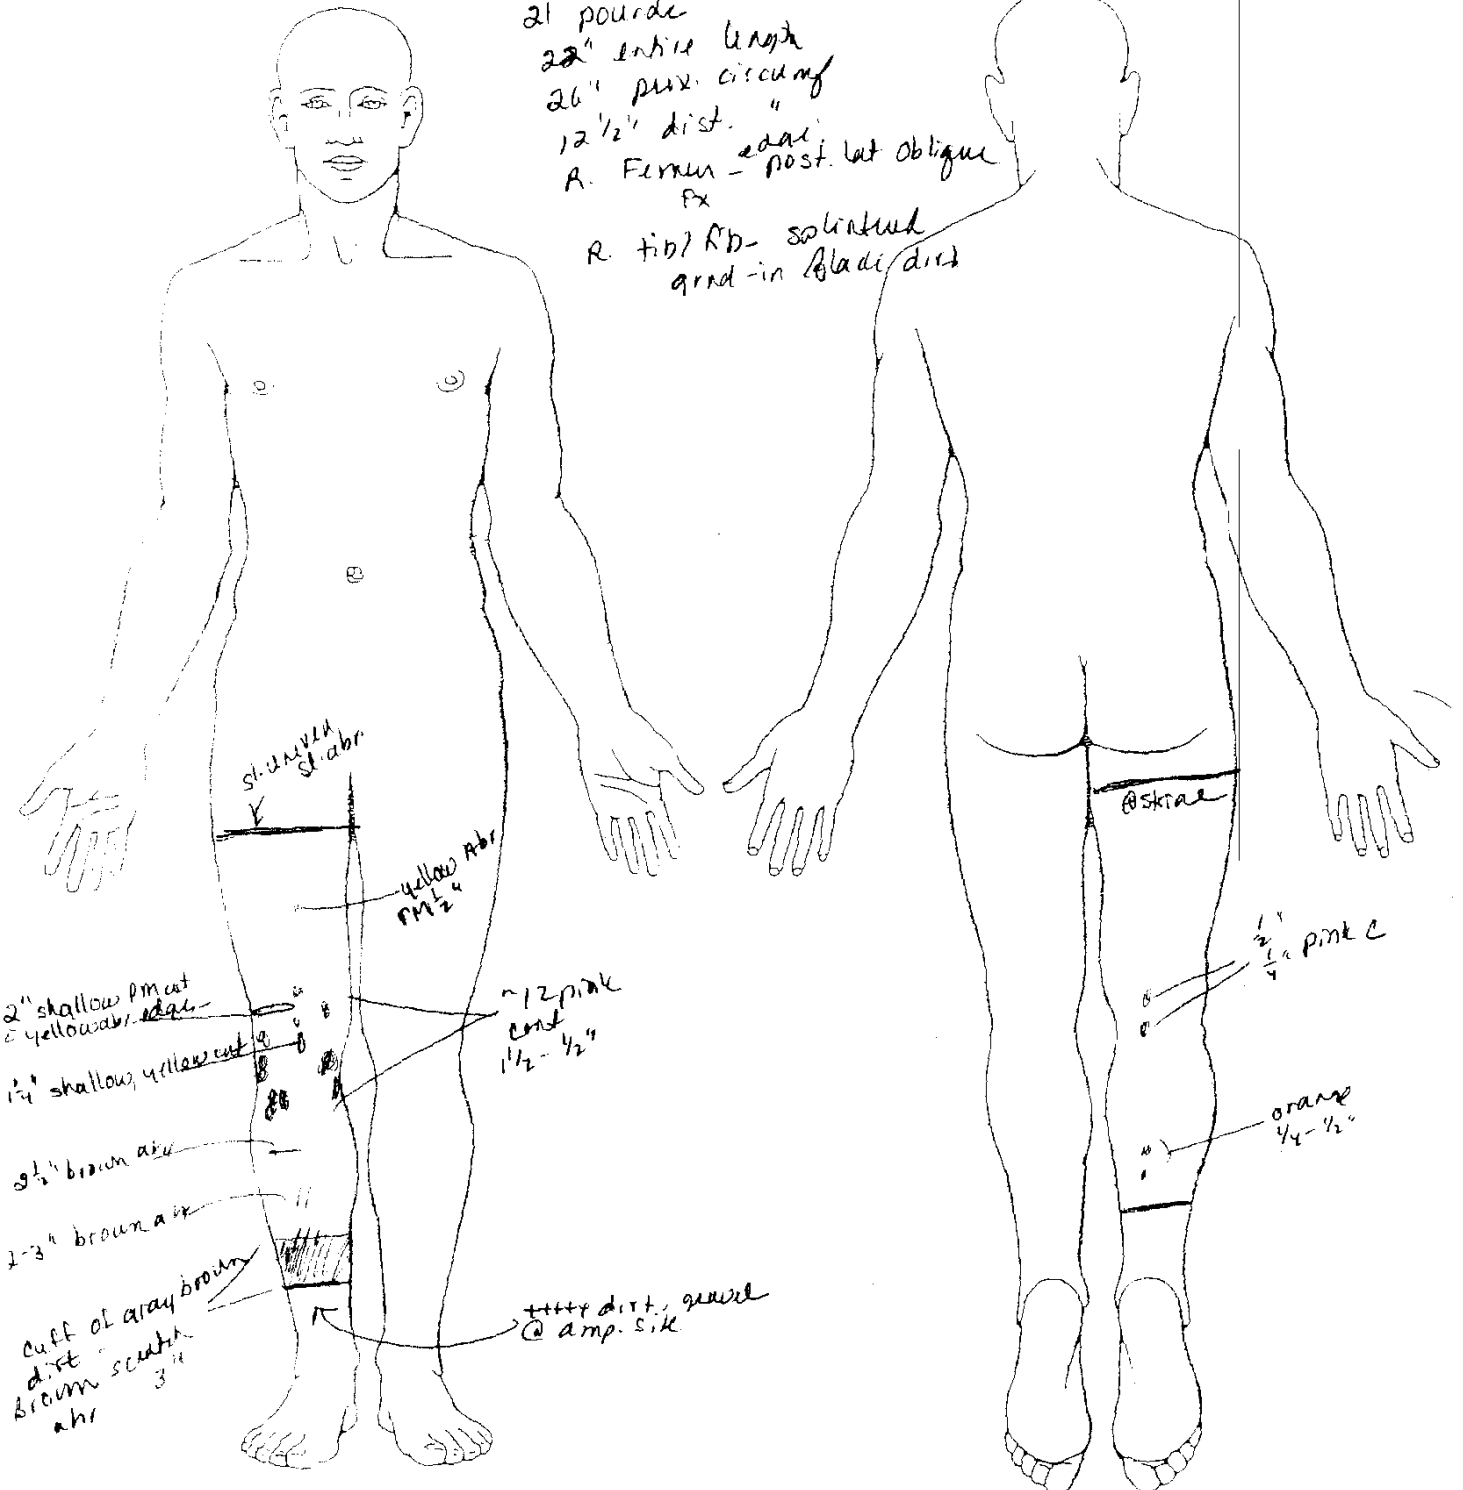 21 pounds
22" entire length
26" prox. circumf
12 1/2" dist. "
R. Femur - post. lat oblique
edge
fx
R. tib/fib - splintered
grnd-in black dirt
sl. uneven
sl. abr.
yellow Abr
PM 1/2"
2" shallow PM cut
c̄ yellow abr. edges
1/4" shallow, yellow cut
~12 pink
cont
1 1/2 - 1/2"
2 1/2" brown abr
2-3" brown abr
cuff of gray brown
dirt
brown scratch
abr 3"
++++ dirt, gravel
@ amp. site
1/2"
1/4" pink c
orange
1/4 - 1/2"